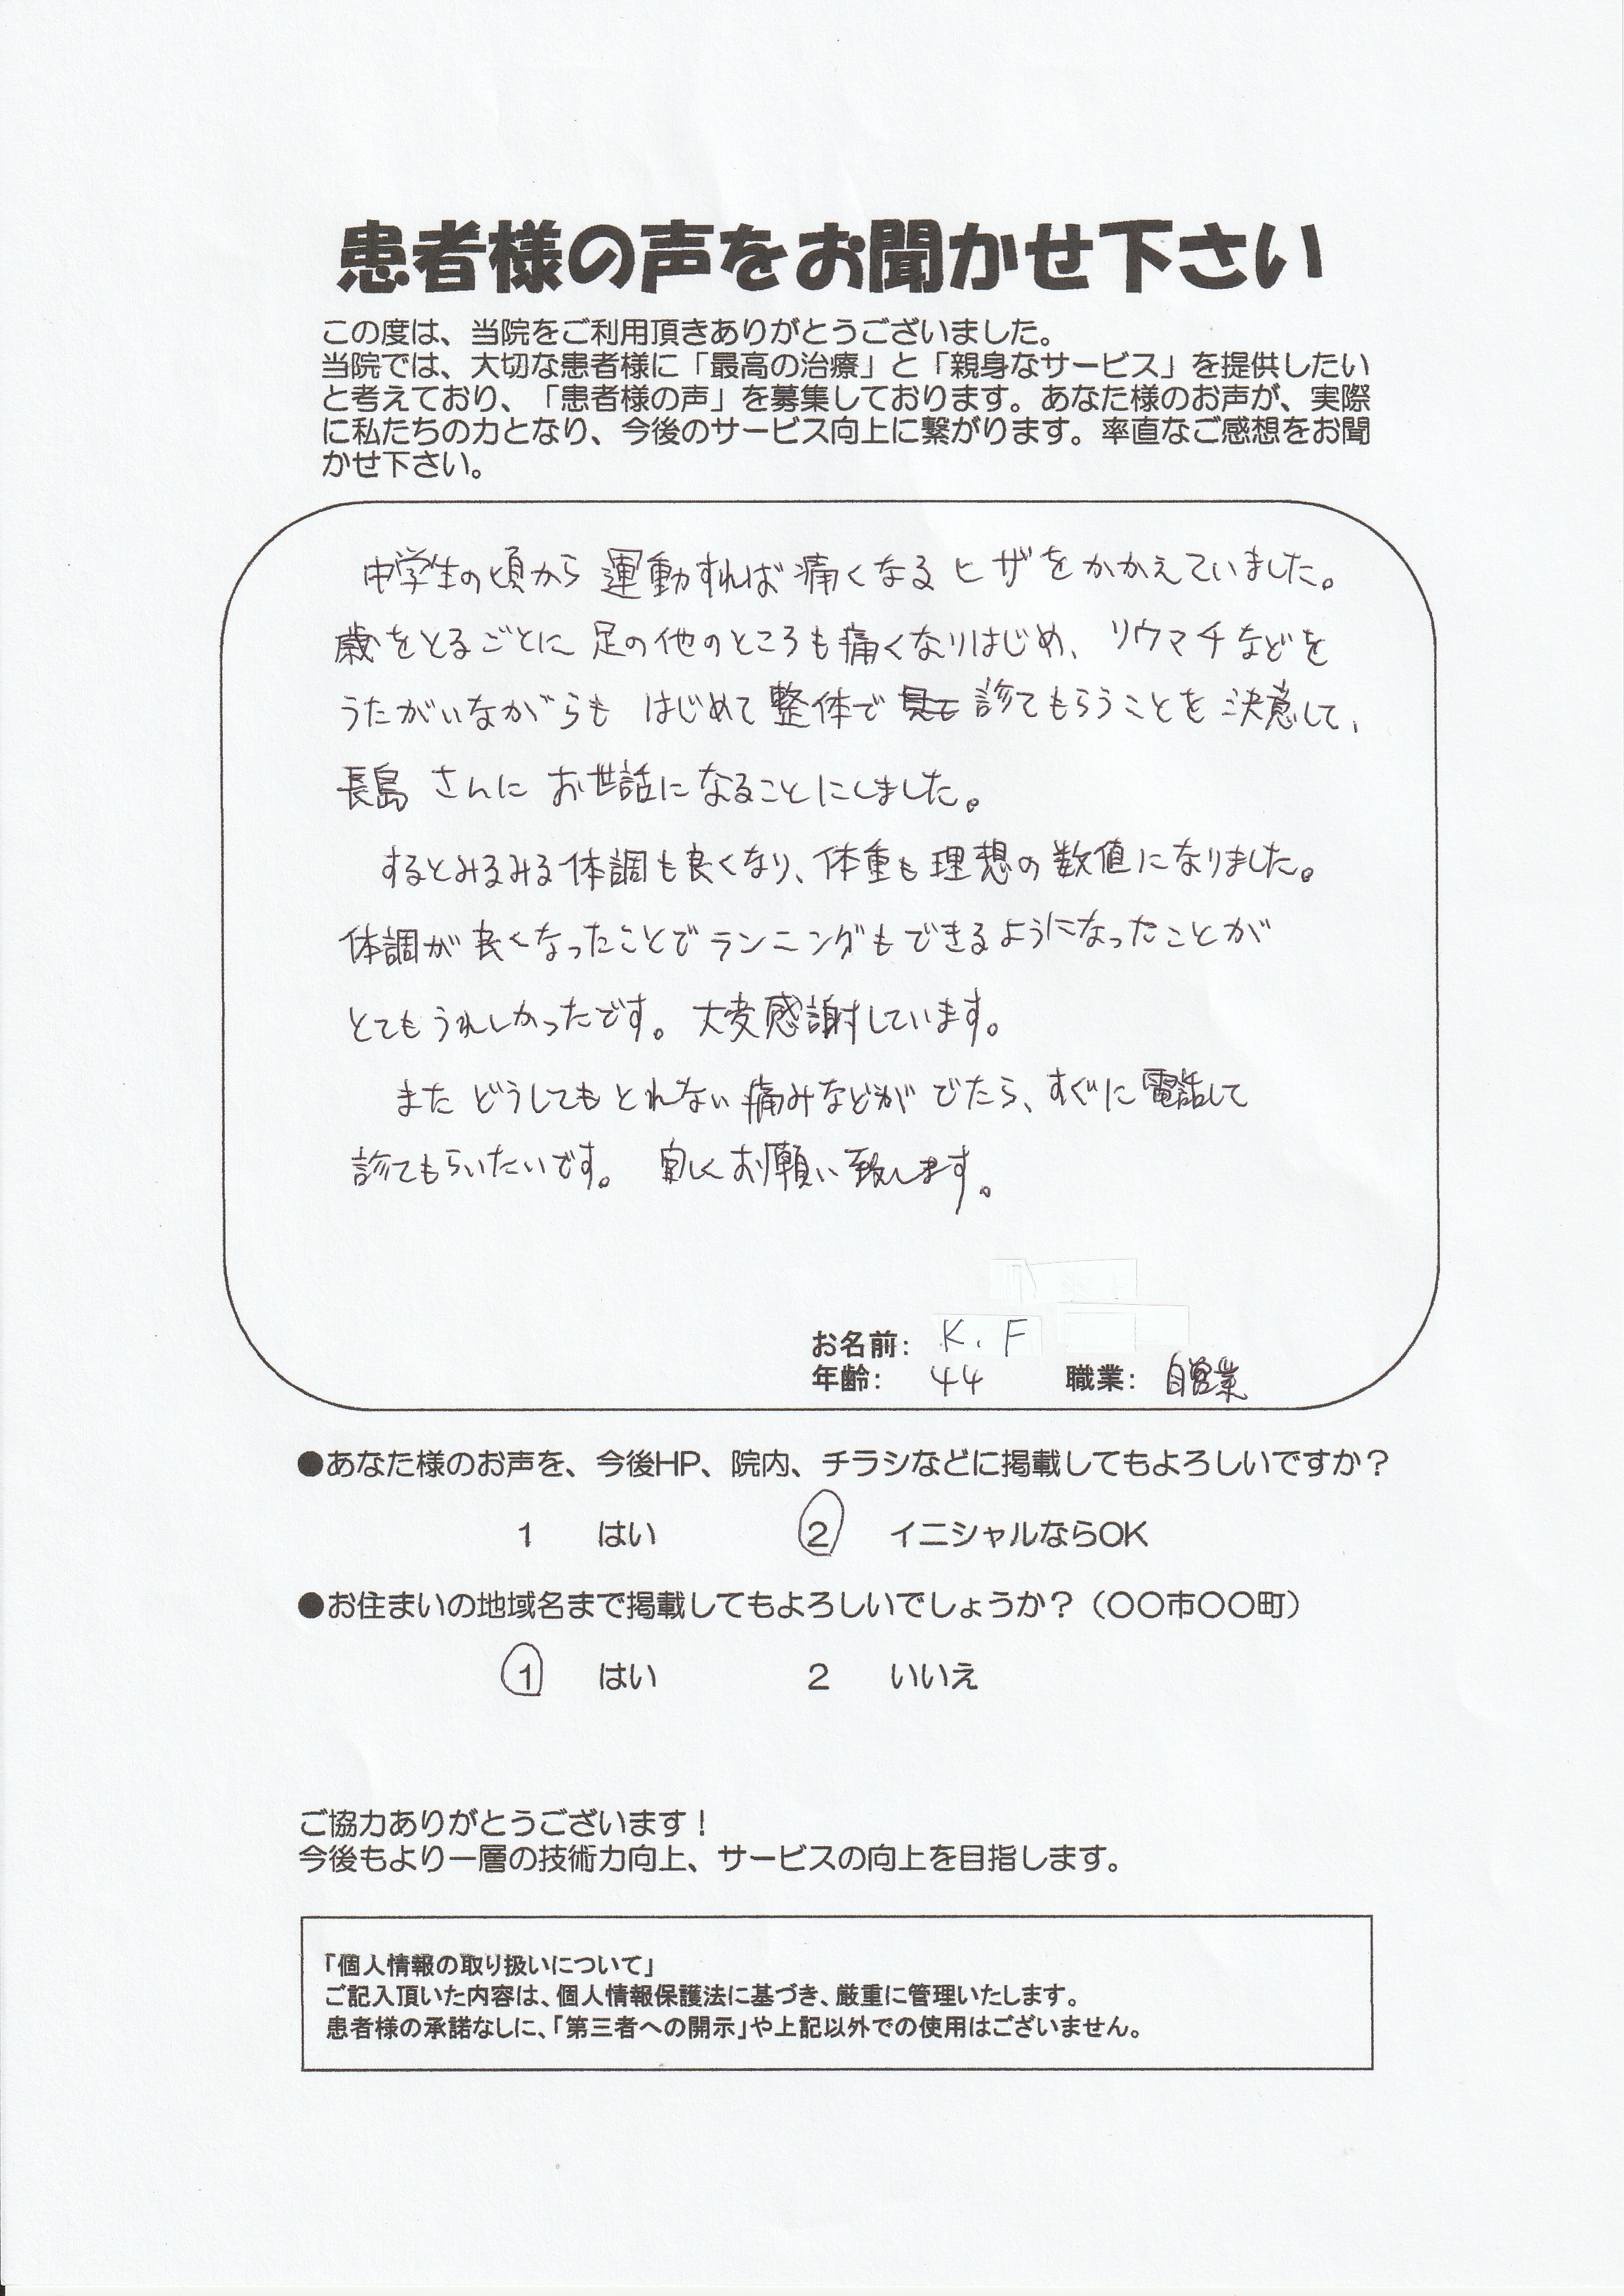 患者様の声をお聞かせ下さい
この度は、当院をご利用頂きありがとうございました。
当院では、大切な患者様に「最高の治療」と「親身なサービス」を提供したい
と考えており、「患者様の声」を募集しております。あなた様のお声が、実際
に私たちの力となり、今後のサービス向上に繋がります。率直なご感想をお聞
かせ下さい。
中学生の頃から運動すれば痛くなるヒザをかかえていました。
歳をとるごとに足の他のところも痛くなりはじめ、リウマチなどを
うたがいながらも はじめて整体で診てもらうことを決意して、
長島さんにお世話になることにしました。
するとみるみる体調も良くなり、体重も理想の数値になりました。
体調が良くなったことでランニングもできるようになったことが
とてもうれしかったです。大変感謝しています。
またどうしてもとれない痛みなどがでたら、すぐに電話して
診てもらいたいです。宜しくお願い致します。
お名前: K.F
年齢: 44 職業: 自営業
●あなた様のお声を、今後HP、院内、チラシなどに掲載してもよろしいですか？
1 はい 2 イニシャルならOK
●お住まいの地域名まで掲載してもよろしいでしょうか？（〇〇市〇〇町）
1 はい 2 いいえ
ご協力ありがとうございます！
今後もより一層の技術力向上、サービスの向上を目指します。
「個人情報の取り扱いについて」
ご記入頂いた内容は、個人情報保護法に基づき、厳重に管理いたします。
患者様の承諾なしに、「第三者への開示」や上記以外での使用はございません。